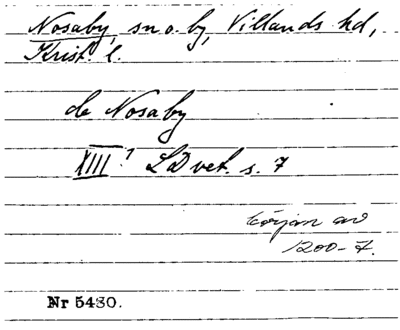 Nosaby, sn o. by, Villands hd,
Krist. l.
de Nosaby
XIII:1 LD vet. s. 7
början av
1200-t.
Nr 5480.